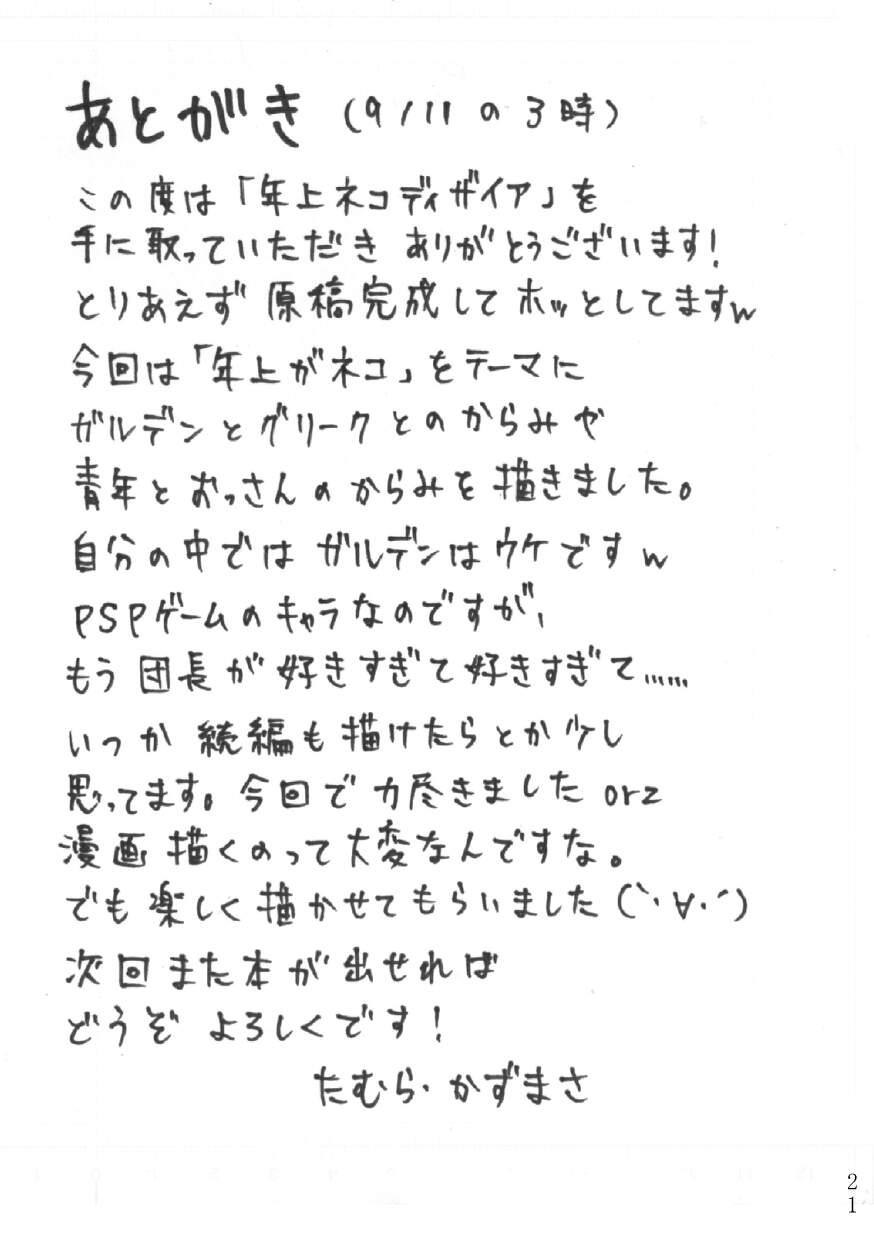 あとがき (9/11の3時)
この度は「年上ネコディザイア」を
手に取っていただき ありがとうございます!
とりあえず 原稿完成して ホッとしてますw
今回は「年上がネコ」をテーマに
ガルデンとグリークとのからみや
青年とおっさんのからみを描きました。
自分の中では ガルデンはウケですw
PSPゲームのキャラなのですが、
もう 団長が 好きすぎて好きすぎて……
いつか 続編も描けたらとか少し
思ってます。今回で力尽きました orz
漫画 描くのって大変なんですな。
でも 楽しく描かせてもらいました(`・∀・´)
次回また本が出せれば
どうぞ よろしくです!
たむら・かずまさ
21